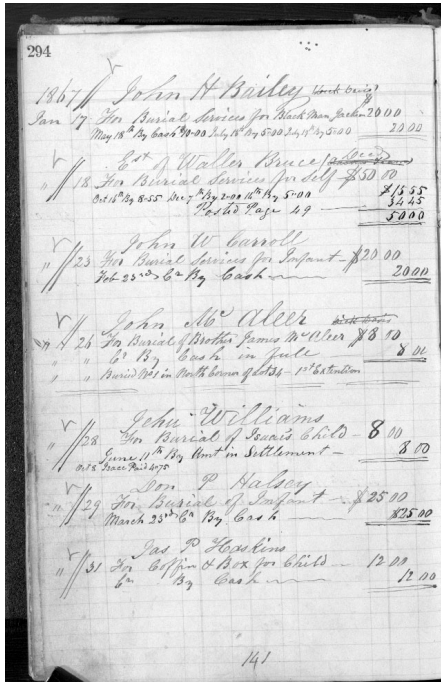 294
1867 John H Bailey
Jan 17 For Burial Services for Black Man Jackson 20 00
May 18th By Cash 10-00 July 18th By 5-00 July 18 By 5-00 20 00
Est of Walter Bruce
" 18 For Burial Services for Self $50 00
Oct 16th By 8-55 Dec 7th By 2-00 16th By 5-00 $15 55
Posted Page 49 34 45
50 00
John W Carroll
" 23 For Burial Services for Infant $20 00
Feb 23rd Cr By Cash 20 00
John Mc Aleer
" 26 For Burial of Brother James Mc Aleer $8 00
" " Cr By Cash in full 8 00
" " Buried No 1 in North Corner of Lot 34 - 1st Extention
Jehu Williams
" 28 For Burial of Isaais Child - 8 00
June 11th By Amt in Settlement - 8 00
Paid 4 75
Don P Halsey
" 29 For Burial of Infant $25 00
March 23rd Cr By Cash $25 00
Jas P Haskins
" 31 For Coffin & Box for Child 12 00
Cr By Cash 12 00
141